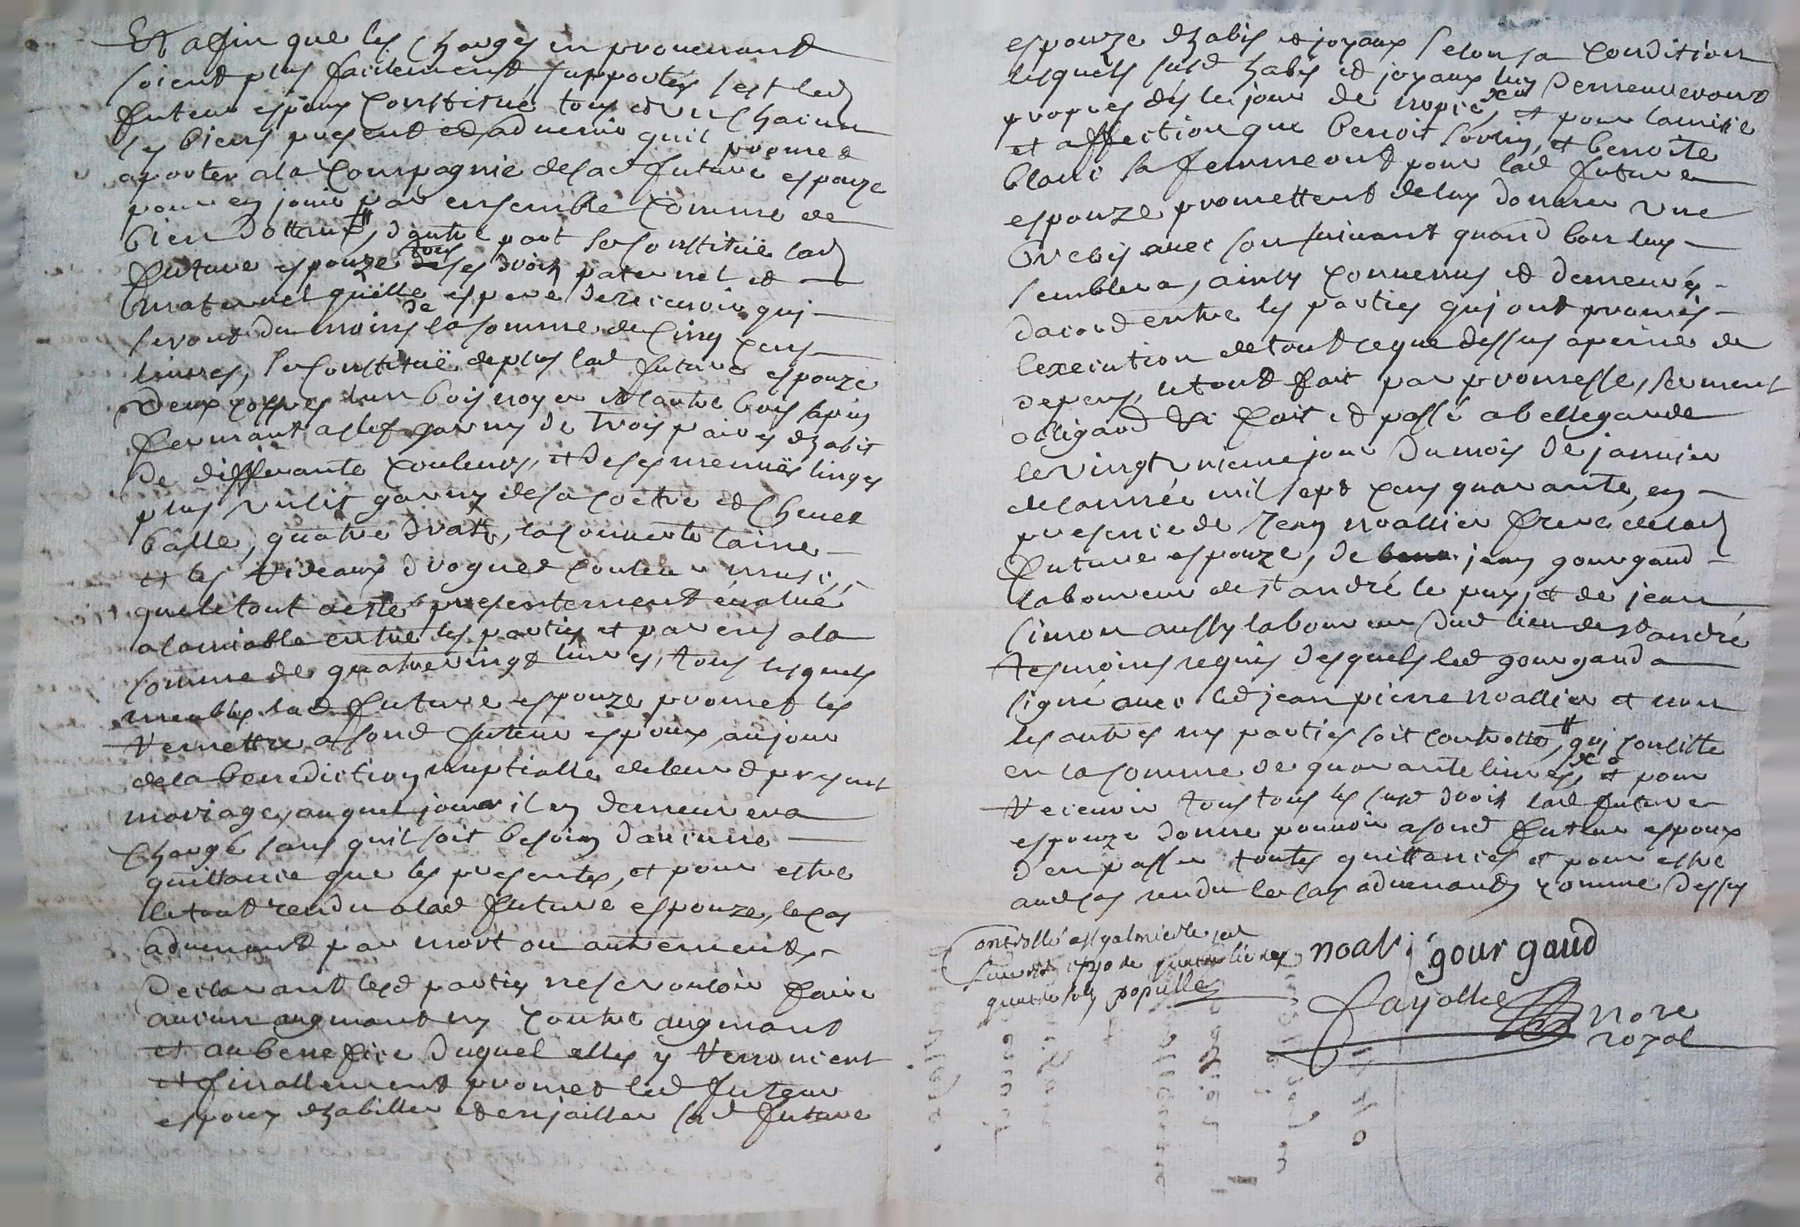 Et affin que les charges en provenant
soient plus facilement supportés sest led
futeur espoux constitué tous et un chacun
ses biens present et advenir quil promet
aporter a la compagnie de sad future espouze
pour en jouir par ensemble comme de
bien dottaux #, dautre part se constitüe lad
future espouze tous ses droits paternel et
maternel quelle espere de recevoir qui
seront du moins de la somme de cinq cens
livres, se constitüe de plus lad future espouze
deux coffres lun bois noyer et lautre bois sapin
fermant a clef garny de trois paires dhabit
de differante couleurs, et de ses menuës linges
plus un lit garny de sa coetre et chevet
balle, quatre draps, la couverte laine
et les rideaux droguet couleur musc,
que le tout a esté presentement évalué
a lamiable entre les parties et parens a la
somme de quatrevingt livres, tous lesquels
meubles lad future espouze promet les
remettre a sond futeur espoux au jour
de la benediction nuptialle de leur d present
mariage, auquel jour il en demeurera
chargé sans quil soit besoin daucune
quittance que les presentes, et pour estre
le tout rendu a lad future espouze, le cas
advenant par mort ou autrement,
declarant lesd parties ne se vouloir faire
aucun augment ny contre augment
et au benefice duquel elles y renoncent
et finallement promet led futeur
espoux dhabiller et enjoailler sad future
espouze dhabis et joyaux selon sa condition
lesquels susd habis et joyaux luy demeureront
propres dès le jour de nopce, et pour lamitié
et affection que benoit et benoite
blanc sa femme ont pour lad future
espouze promettent de luy donner une
brebis avec son suivant quand bon luy
semblera, ainsy convenus et demeurés
dacord entre les parties qui ont promis
lexecution de tout ce que dessus a peine de
depens, le tout fait par promesse, serment
obligaõn &c fait et passé a bellegarde
le vingt jour du mois de janvier
de lannée mil sept cens quarante, en
presence de Jean noallier frere de lad
future espouze, de jean gourgaud
laboureur de st andré le puy, et de jean
simon aussy laboureur dud lieu de st andré
tesmoins requis desquels led gourgaud a
signé avec led jean pierre noallier et non
les autres ny parties soit controllé, # qui consiste
en la somme de quarante livres, et pour
recevoir tous les susd droits lad future
espouze donne pouvoir a sond futeur espoux
den passer toutes quittances et pour estre
aud cas rendu le cas advenant comme dessus
Controllé a st galmier le
1740 quatre livres
quatre sols populle
noali gourgaud
fayolle nore
royal